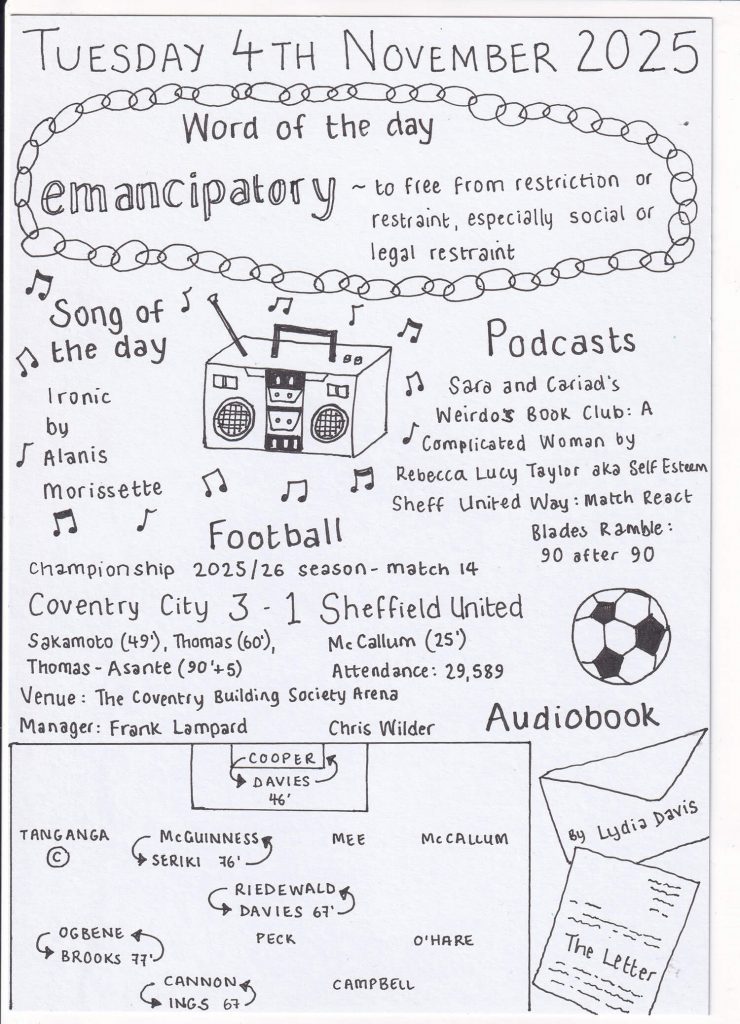 TUESDAY 4TH NOVEMBER 2025
Word of the day
emancipatory ~ to free from restriction or
restraint, especially social or
legal restraint
Song of
the day
Ironic
by
Alanis
Morissette
Podcasts
Sara and Cariad's
Weirdos Book Club: A
Complicated Woman by
Rebecca Lucy Taylor aka Self Esteem
Sheff United Way: Match React
Blades Ramble:
90 after 90
Football
Championship 2025/26 season - match 14
Coventry City 3 - 1 Sheffield United
Sakamoto (49'), Thomas (60'),
Thomas-Asante (90'+5)
McCallum (25')
Attendance: 29,589
Venue: The Coventry Building Society Arena
Manager: Frank Lampard
Chris Wilder
COOPER
DAVIES
46'
TANGANGA
C
McGUINNESS
SERIKI 76'
MEE
McCALLUM
RIEDEWALD
DAVIES 67'
OGBENE
BROOKS 77'
PECK
O'HARE
CANNON
INGS 67
CAMPBELL
Audiobook
By Lydia Davis
The Letter